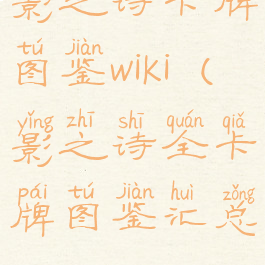 影之诗卡牌
tú jiàn
图鉴wiki（
yǐng zhī shī quán qiǎ
影之诗全卡
pái tú jiàn huì zǒng
牌图鉴汇总